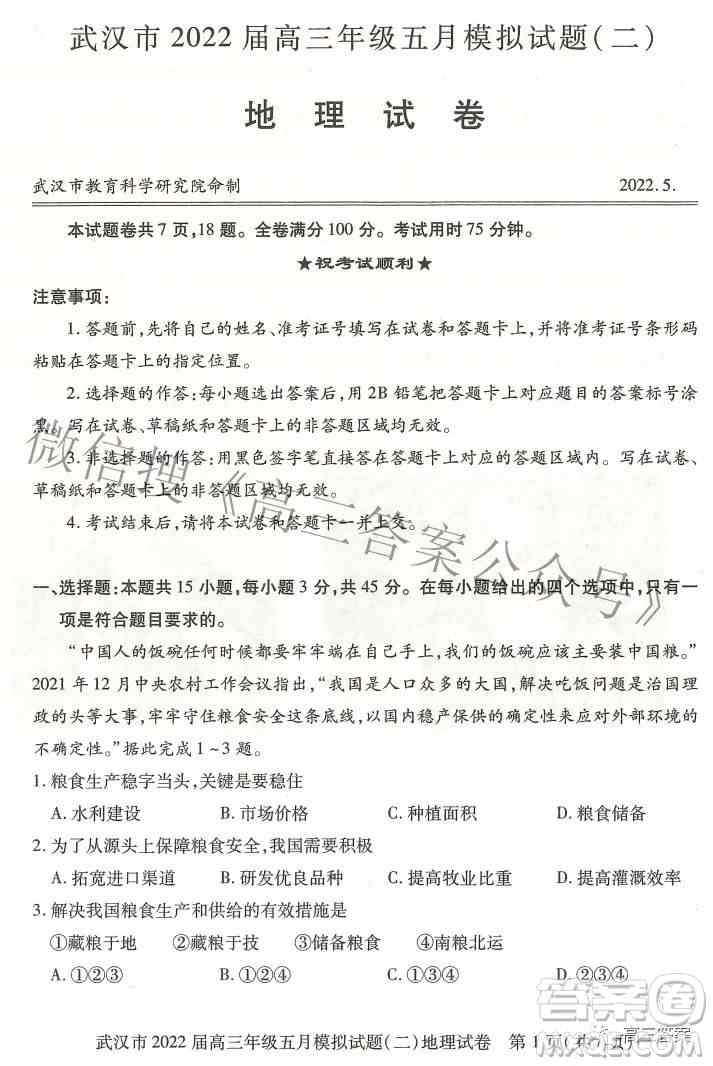 武汉市 2022 届高三年级五月模拟试题(二)
地 理 试 卷
武汉市教育科学研究院命制 2022.5.
本试题卷共 7 页,18 题。全卷满分 100 分。考试用时 75 分钟。
★祝考试顺利★
注意事项:
1. 答题前,先将自己的姓名、准考证号填写在试卷和答题卡上,并将准考证号条形码
粘贴在答题卡上的指定位置。
2. 选择题的作答:每小题选出答案后,用 2B 铅笔把答题卡上对应题目的答案标号涂
黑。写在试卷、草稿纸和答题卡上的非答题区域均无效。
3. 非选择题的作答:用黑色签字笔直接答在答题卡上对应的答题区域内。写在试卷、
草稿纸和答题卡上的非答题区域均无效。
4. 考试结束后,请将本试卷和答题卡一并上交。
微信搜《高三答案公众号》
一、选择题:本题共 15 小题,每小题 3 分,共 45 分。在每小题给出的四个选项中,只有一
项是符合题目要求的。
“中国人的饭碗任何时候都要牢牢端在自己手上,我们的饭碗应该主要装中国粮。”
2021 年 12 月中央农村工作会议指出,“我国是人口众多的大国,解决吃饭问题是治国理
政的头等大事,牢牢守住粮食安全这条底线,以国内稳产保供的确定性来应对外部环境的
不确定性。”据此完成 1~3 题。
1. 粮食生产稳字当头,关键是要稳住
A. 水利建设 B. 市场价格 C. 种植面积 D. 粮食储备
2. 为了从源头上保障粮食安全,我国需要积极
A. 拓宽进口渠道 B. 研发优良品种 C. 提高牧业比重 D. 提高灌溉效率
3. 解决我国粮食生产和供给的有效措施是
①藏粮于地 ②藏粮于技 ③储备粮食 ④南粮北运
A. ①②③ B. ①②④ C. ①③④ D. ②③④
答案圈
高三答案
武汉市 2022 届高三年级五月模拟试题(二)地理试卷 第 1 页(共 7 页)